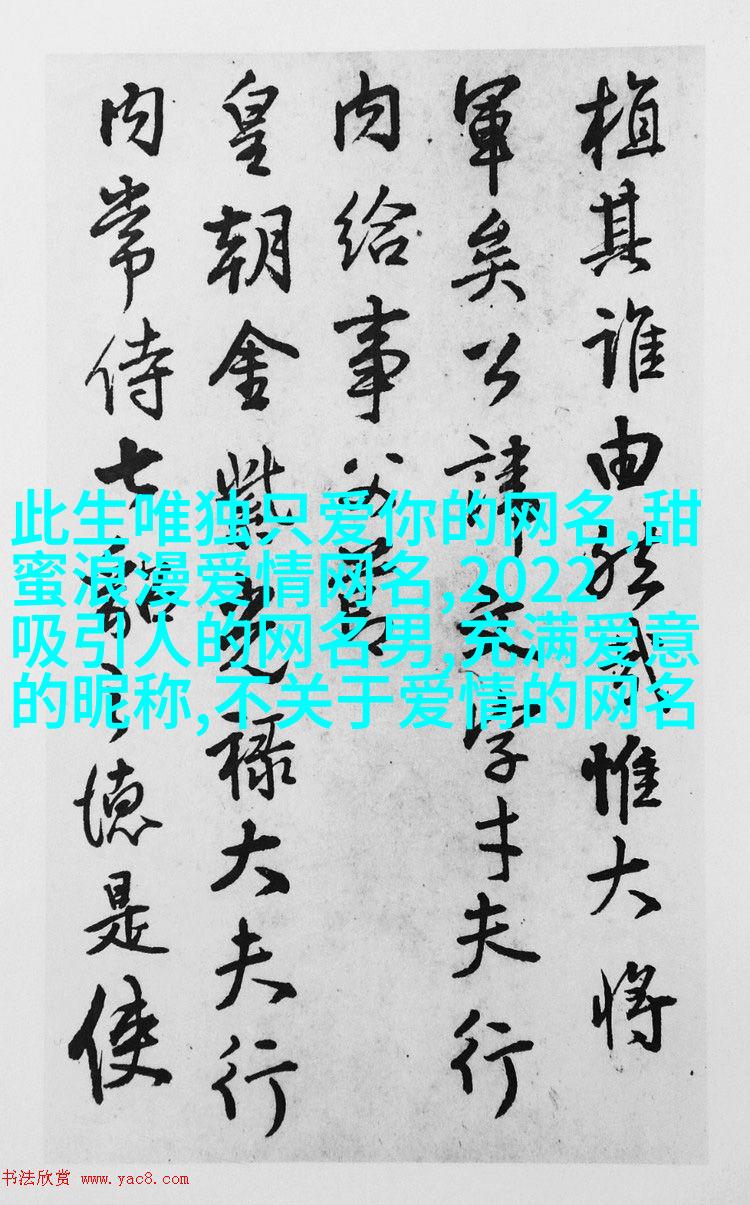 植其誰由然哉惟大将
軍矣公諱才夫行
内給事父
皇朝金紫光禄大夫行
内常侍七貂之德是使
此生唯独只爱你的网名,甜
蜜浪漫爱情网名,2022
吸引人的网名男,充满爱意
的昵称,不关于爱情的网名
书法欣赏 www.yac8.com